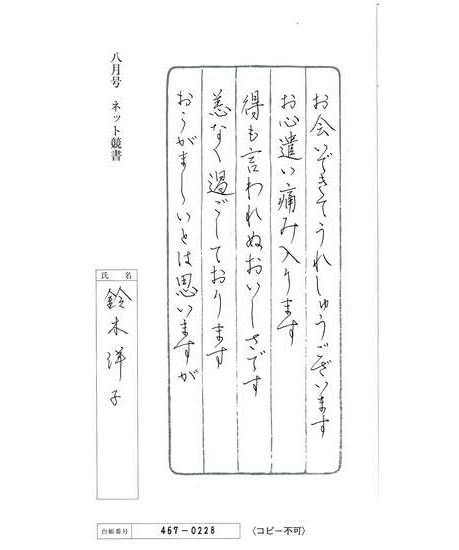 お会いできてうれしゅうございます
お心遣い痛み入ります
得も言われぬおいしさです
恙なく過ごしております
おこがましいとは思いますが
八月号 ネット競書
氏名
鈴木洋子
台帳番号 467-0228 〈コピー不可〉